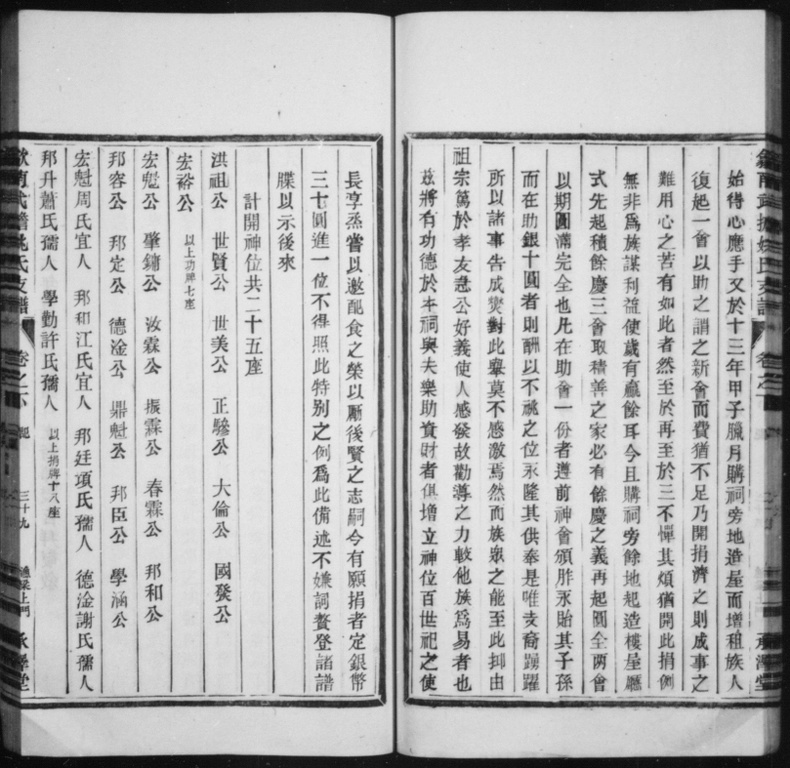 始得心應手又於十三年甲子臘月購祠旁地造屋而增租族人
復起一會以助之謂之新會而費猶不足乃開捐濟之則成事之
難用心之苦有如此者然至於再至於三不憚其煩猶開此捐例
無非爲族謀利益使歲有贏餘耳今且購祠旁餘地起造樓屋廳
式先起積餘慶三會取積善之家必有餘慶之義再起圓全兩會
以期圓滿完全也凡在助會一份者遵前神會頒胙永貽其子孫
而在助銀十圓者則酬以不祧之位永隆其供奉是唯支裔踴躍
所以諸事告成爽對此舉莫不感激焉然而族眾之能至此抑由
祖宗篤於孝友急公好義使人感發故勸導之力較他族爲易者也
茲將有功德於本祠與夫樂助資財者俱增立神位百世祀之使
長享烝嘗以邀配食之榮以勵後賢之志嗣今有願捐者定銀幣
三十圓進一位不得照此特別之例爲此備述不嫌詞贅登諸譜
牒以示後來
計開神位共二十五座
洪祖公 世賢公 世美公 正驂公 大倫公 國發公
宏裕公 以上功牌七座
宏魁公 肇鏞公 汝霖公 振霖公 春霖公 邦和公
邦容公 邦定公 德淦公 鼎魁公 邦臣公 學涵公
宏魁周氏宜人 邦和江氏宜人 邦廷項氏孺人 德淦謝氏孺人
邦升蕭氏孺人 學勤許氏孺人 以上捐牌十八座
氏支譜 卷之下 三十九 承澤堂